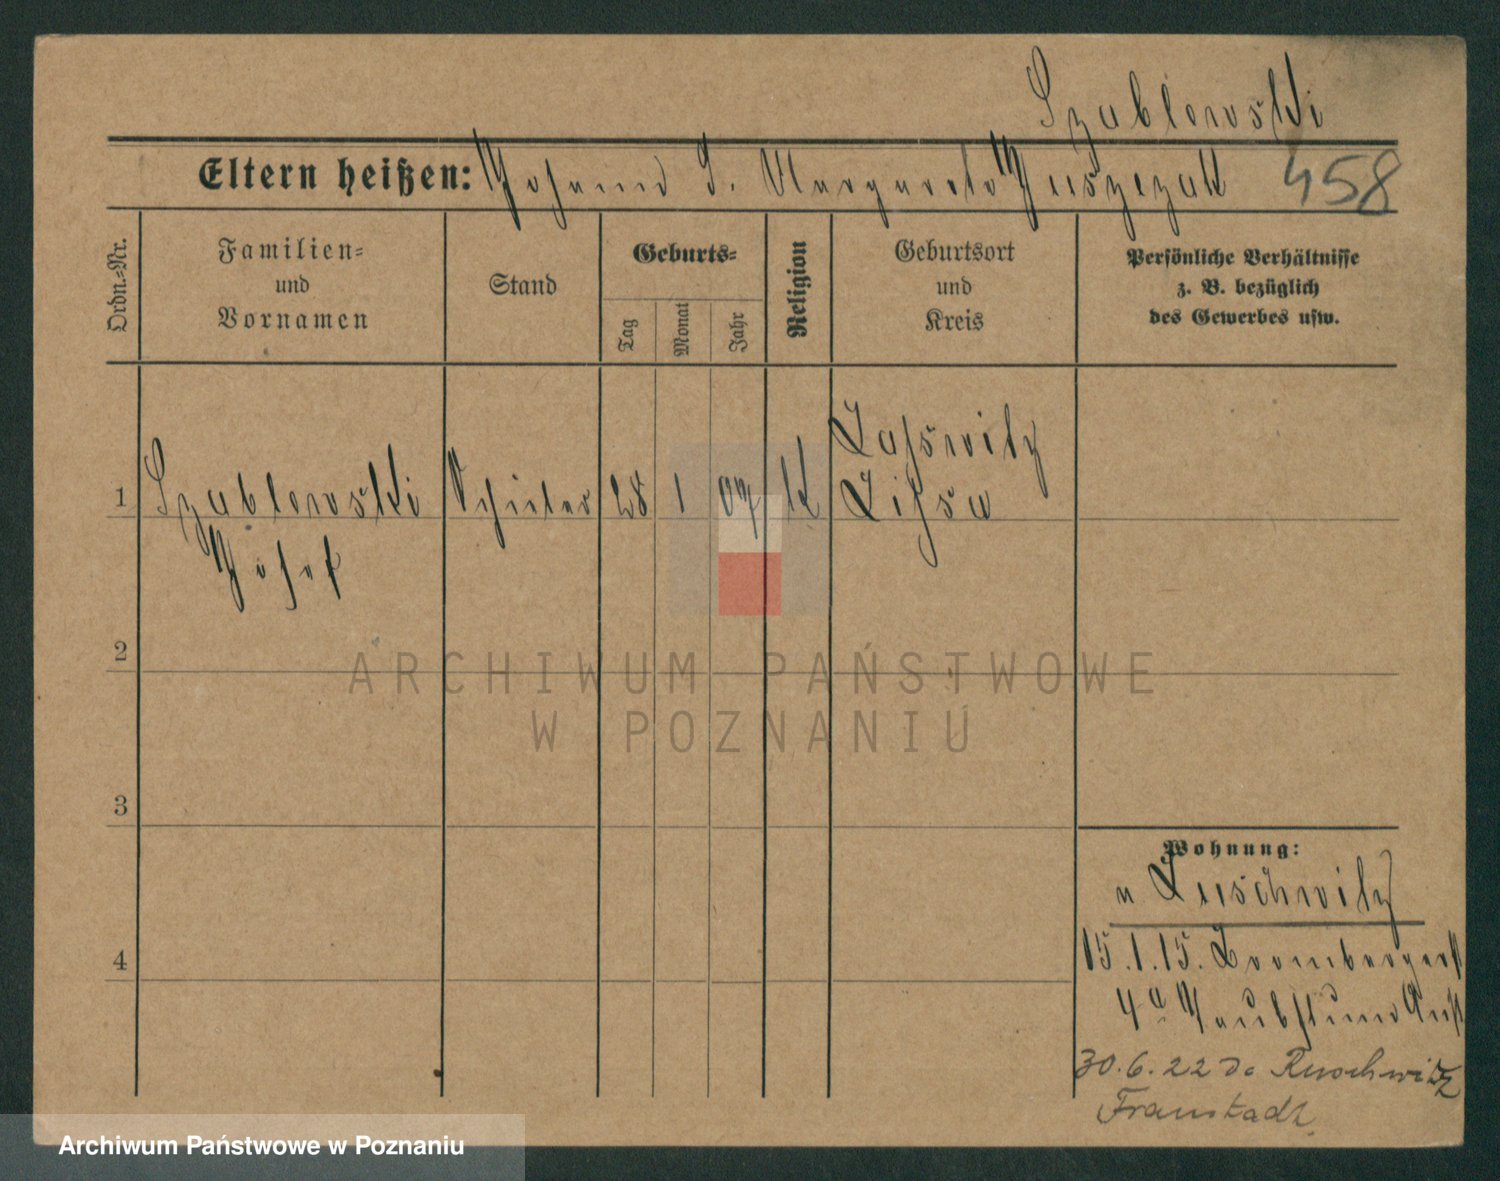 Szablewski
Eltern heißen: Johann S. Margareta Juszczak 458
Ordn.-Nr.
Familien-
und
Vornamen
Stand
Geburts-
Tag
Monat
Jahr
Religion
Geburtsort
und
Kreis
Persönliche Verhältnisse
z. B. bezüglich
des Gewerbes usw.
Laßwitz
1 Szablewski Schüler 28 1 07 k Lissa
Josef
2
ARCHIWUM PAŃSTWOWE
W POZNANIU
3
Wohnung:
n Luschwitz
4
15.1.15. Brombergerst
4a Taubstumm Anst
30.6.22
Fraustadt
Archiwum Państwowe w Poznaniu